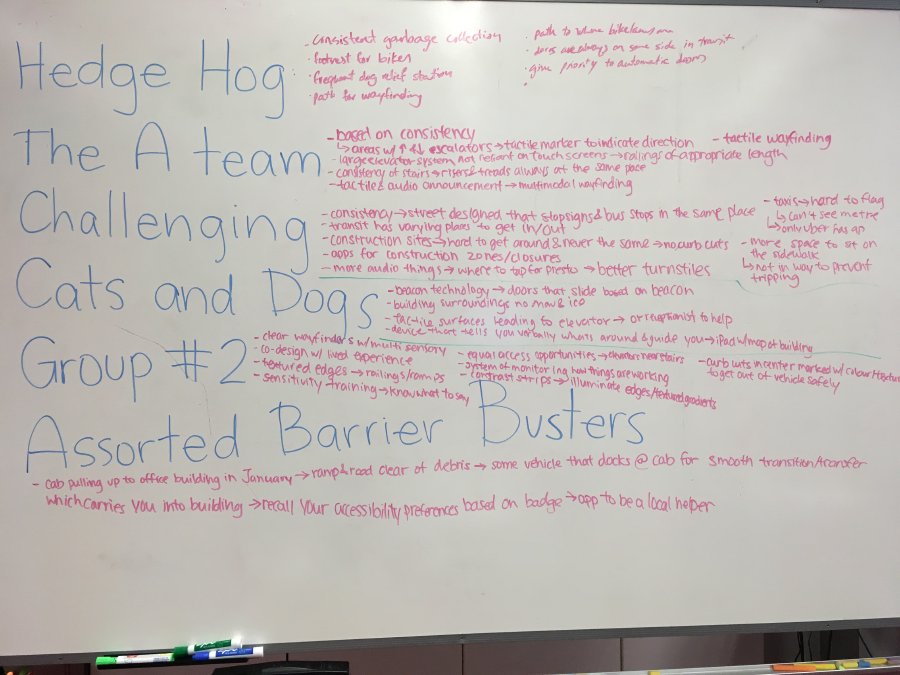 Hedge Hog
- consistent garbage collection
· footrest for bikes
· frequent dog relief stations
· path for wayfinding
· path to where bike lanes are
· doors are always on same side in transit
· give priority to automatic doors
The A team
- based on consistency
↳ areas w/ ↑ & ↓ escalators → tactile marker to indicate direction
- large elevator system, not reliant on touch screens → railings of appropriate length
- consistency of stairs → risers & treads always at the same pace
- tactile & audio announcement → multimodal wayfinding
- tactile wayfinding
Challenging
- consistency → street designed that stop signs & bus stops in the same place
- transit has varying places to get in/out
- construction sites → hard to get around & never the same → no curb cuts
- apps for construction zones/closures
- more audio things → where to tap for presto → better turnstiles
- taxis → hard to flag
↳ can't see metre
↳ only uber has ap
- more space to sit on
the sidewalk
↳ not in way to prevent
tripping
Cats and Dogs
- beacon technology → doors that slide based on beacon
- building surroundings no snow & ice
- tactile surfaces leading to elevator → or receptionist to help
- device that tells you verbally whats around & guide you → ipad w/ map of building
Group #2
- clear wayfinders w/ multi sensory
- co-design w/ lived experience
- textured edges → railings/ramps
- sensitivity training → know what to say
- equal access opportunities → elevator near stairs
- system of monitoring how things are working
- contrast strips → illuminate edges/textured gradients
- curb cuts in center marked w/ colour & texture
to get out of vehicle safely
Assorted Barrier Busters
- cab pulling up to office building in January → ramp & road clear of debris → some vehicle that docks @ cab for smooth transition/transfer
which carries you into building → recall your accessibility preferences based on badge → app to be a local helper